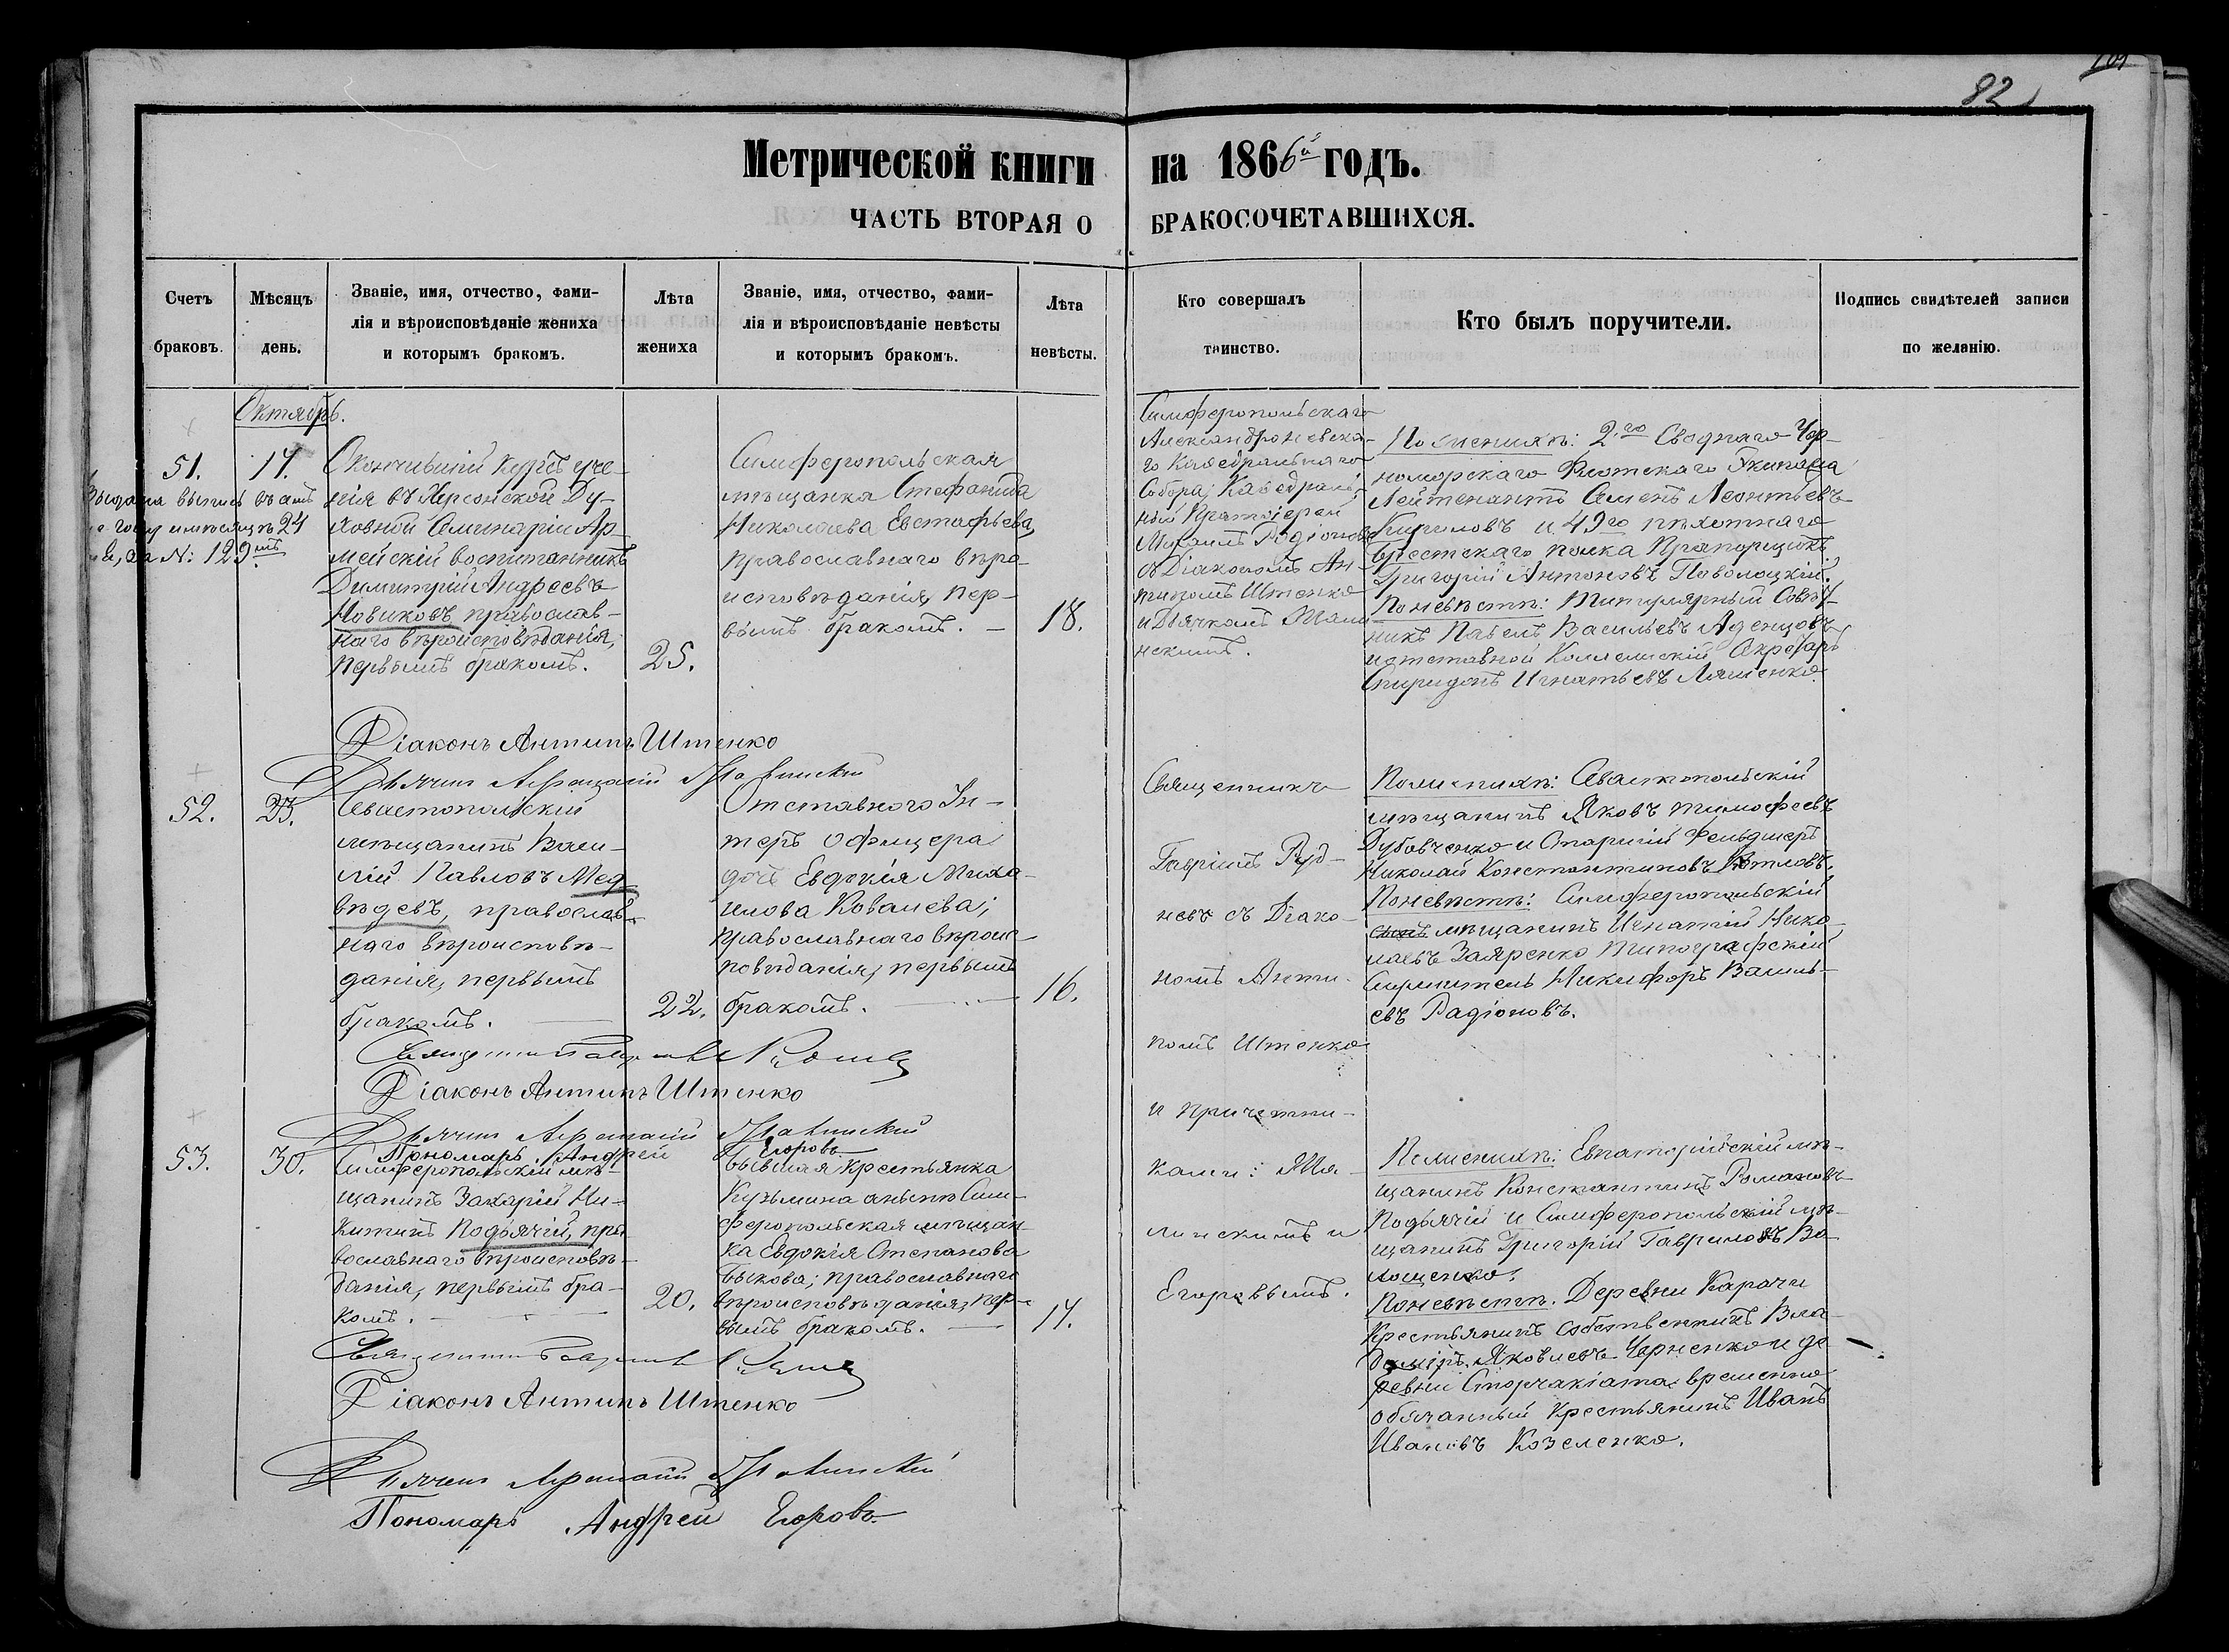 82
Метрической книги на 1866й годъ.
ЧАСТЬ ВТОРАЯ О БРАКОСОЧЕТАВШИХСЯ.
Счетъ браковъ.
Мѣсяцъ день.
Званіе, имя, отчество, фами-
лія и вѣроисповѣданіе жениха
и которымъ бракомъ.
Лѣта жениха
Званіе, имя, отчество, фами-
лія и вѣроисповѣданіе невѣсты
и которымъ бракомъ.
Лѣта невѣсты.
Кто совершалъ таинство.
Кто былъ поручители.
Подпись свидѣтелей записи
по желанію.
Октябрь.
51.
17.
Выдана выпись въ
24
за N: 129мъ
Окончившій курсъ уче-
нія въ Херсонской Ду-
ховной Семинаріи Ар-
мейскій воспитанникъ
Димитрій Андреевъ
Новиковъ, православ-
наго вѣроисповѣданія,
первымъ бракомъ.
25.
Симферопольская
мѣщанка Стефанида
Николаева Евстафьева,
православнаго вѣро-
исповѣданія, пер-
вымъ бракомъ. —
18.
Симферопольскаго
Александроневска-
го Каѳедральнаго
Собора; Каѳедраль-
ный Протоіерей
Михаилъ Родіоновъ
съ Діакономъ Ан-
типомъ Штенко
и Дьячкомъ Мали-
нскимъ.
По женихѣ: 2.го Сводного Чер-
номорскаго Флотскаго Экипажа
Лейтенантъ Семенъ Леонтьевъ
Кириловъ и 49го пѣхотнаго
Брестскаго полка Прапорщикъ
Григорій Антоновъ Поволоцкій.
По невѣстѣ: Титулярный Совѣт-
никъ Павелъ Васильевъ Аденцовъ
и отставной Коллежскій Секретарь
Спиридонъ Игнатьевъ Ляшенко.
Діаконъ Антипъ Штенко
Дьячекъ
52.
23.
Севастопольскій
мѣщанинъ Васи-
лій Павловъ Мед-
вѣдевъ, православ-
наго вѣроисповѣ-
данія, первымъ
бракомъ. —
22.
Отставного Ун-
теръ офицера
дочь Евдокія Миха-
илова Ковалева;
православнаго вѣроис-
повѣданія, первымъ
бракомъ. —
16.
Священникъ
Гавріилъ Руд-
невъ съ Діако-
номъ Анти-
помъ Штенко
и причетни-
ками: Ма-
линскимъ и
Егоровымъ.
По женихѣ: Севастопольскій
мѣщанинъ Яковъ Тимофеевъ
Дубовченко и Старшій Фельдшеръ
Николай Константиновъ Котловъ.
По невѣстѣ: Симферопольскій
мѣщанинъ Игнатій Нико-
лаевъ Заяренко Типографскій
Служитель Никифоръ Василь-
евъ Радіоновъ.
Діаконъ Антипъ Штенко
Дьячекъ
Пономарь Андрей Егоровъ
53.
30.
Симферопольскій мѣ-
щанинъ Захарій Ни-
китинъ Подьячій, пра-
вославнаго вѣроисповѣ-
данія, первымъ бра-
комъ. —
20.
бывшая крестьянка
Кузьмина а нынѣ Сим-
феропольская мѣщан-
ка Евдокія Степанова
Быкова; православнаго
вѣроисповѣданія, пер-
вымъ бракомъ. —
17.
По женихѣ: Евпаторійскій мѣ-
щанинъ Константинъ Романовъ
Подьячій и Симферопольскій мѣ-
щанинъ Григорій Гавриловъ Во-
лощенко.
По невѣстѣ. Деревни Карачи
крестьянинъ собственникъ Вла-
диміръ Яковлевъ Черненко и де-
ревни временно
обязанный крестьянинъ Иванъ
Ивановъ Козеленко.
Діаконъ Антипъ Штенко
Дьячекъ
Пономарь Андрей Егоровъ